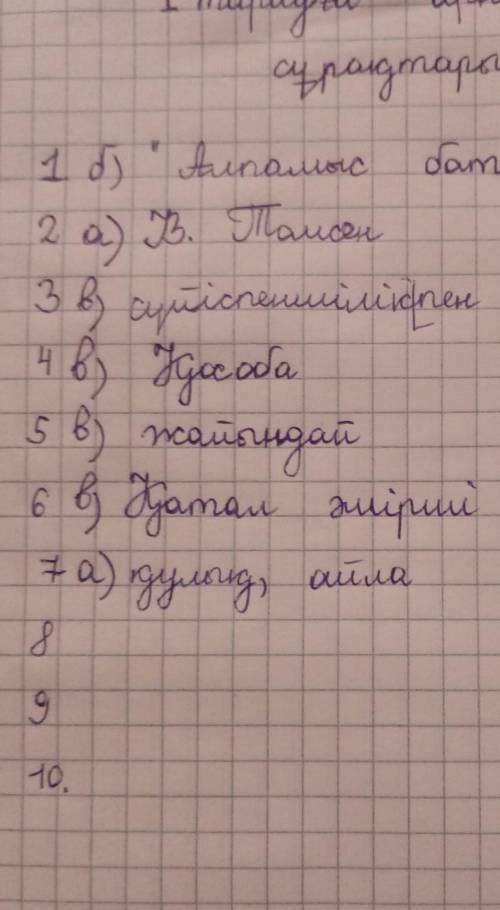 сұрақтары
1 б) " Алпамыс бат
2 а) В. Томсен
3 в) сүйіспеншілікпен
4 в) Қособа
5 в) жайындай
6 в) Қатал әмірші
7 а) қулық, айла
8
9
10.